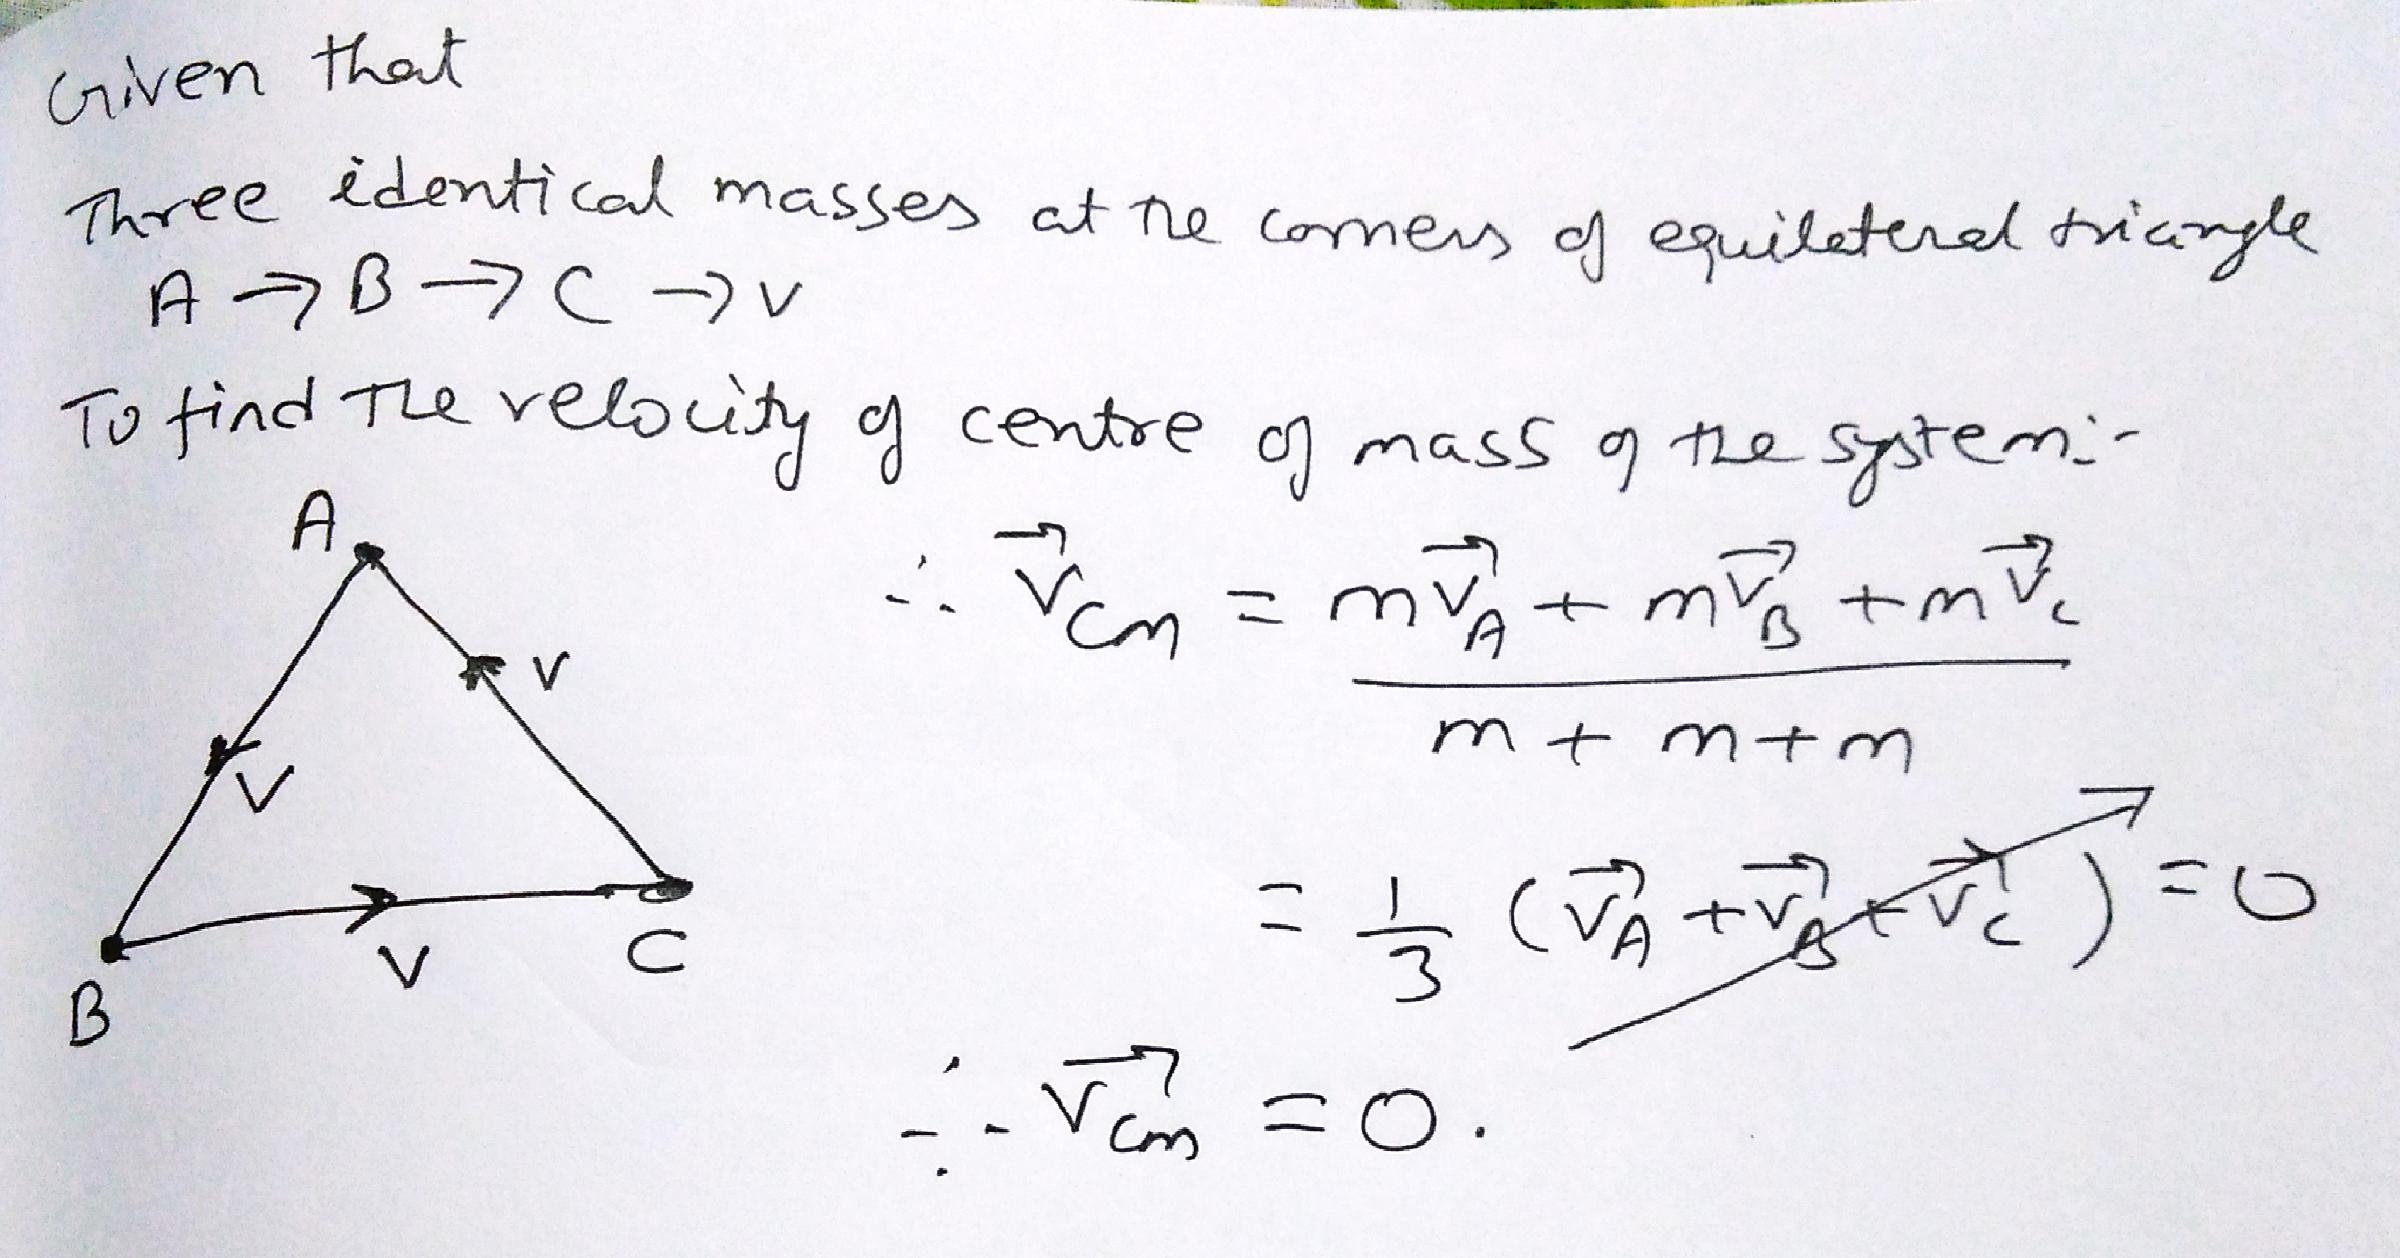 Given that
Three identical masses at the corners of equilateral triangle
A → B → C → v
To find the velocity of centre of mass of the system:-
A
∴ V⃗cm = mV⃗A + mV⃗B + mV⃗c
v
m + m + m
V
= 1/3 (V⃗A + V⃗B + V⃗c) = 0
V
C
B
∴ V⃗cm = 0.